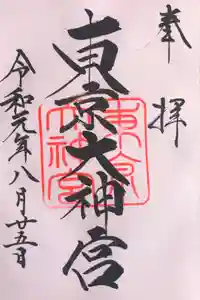 奉拝
東京大神宮
東京大神宮
令和元年八月廿五日